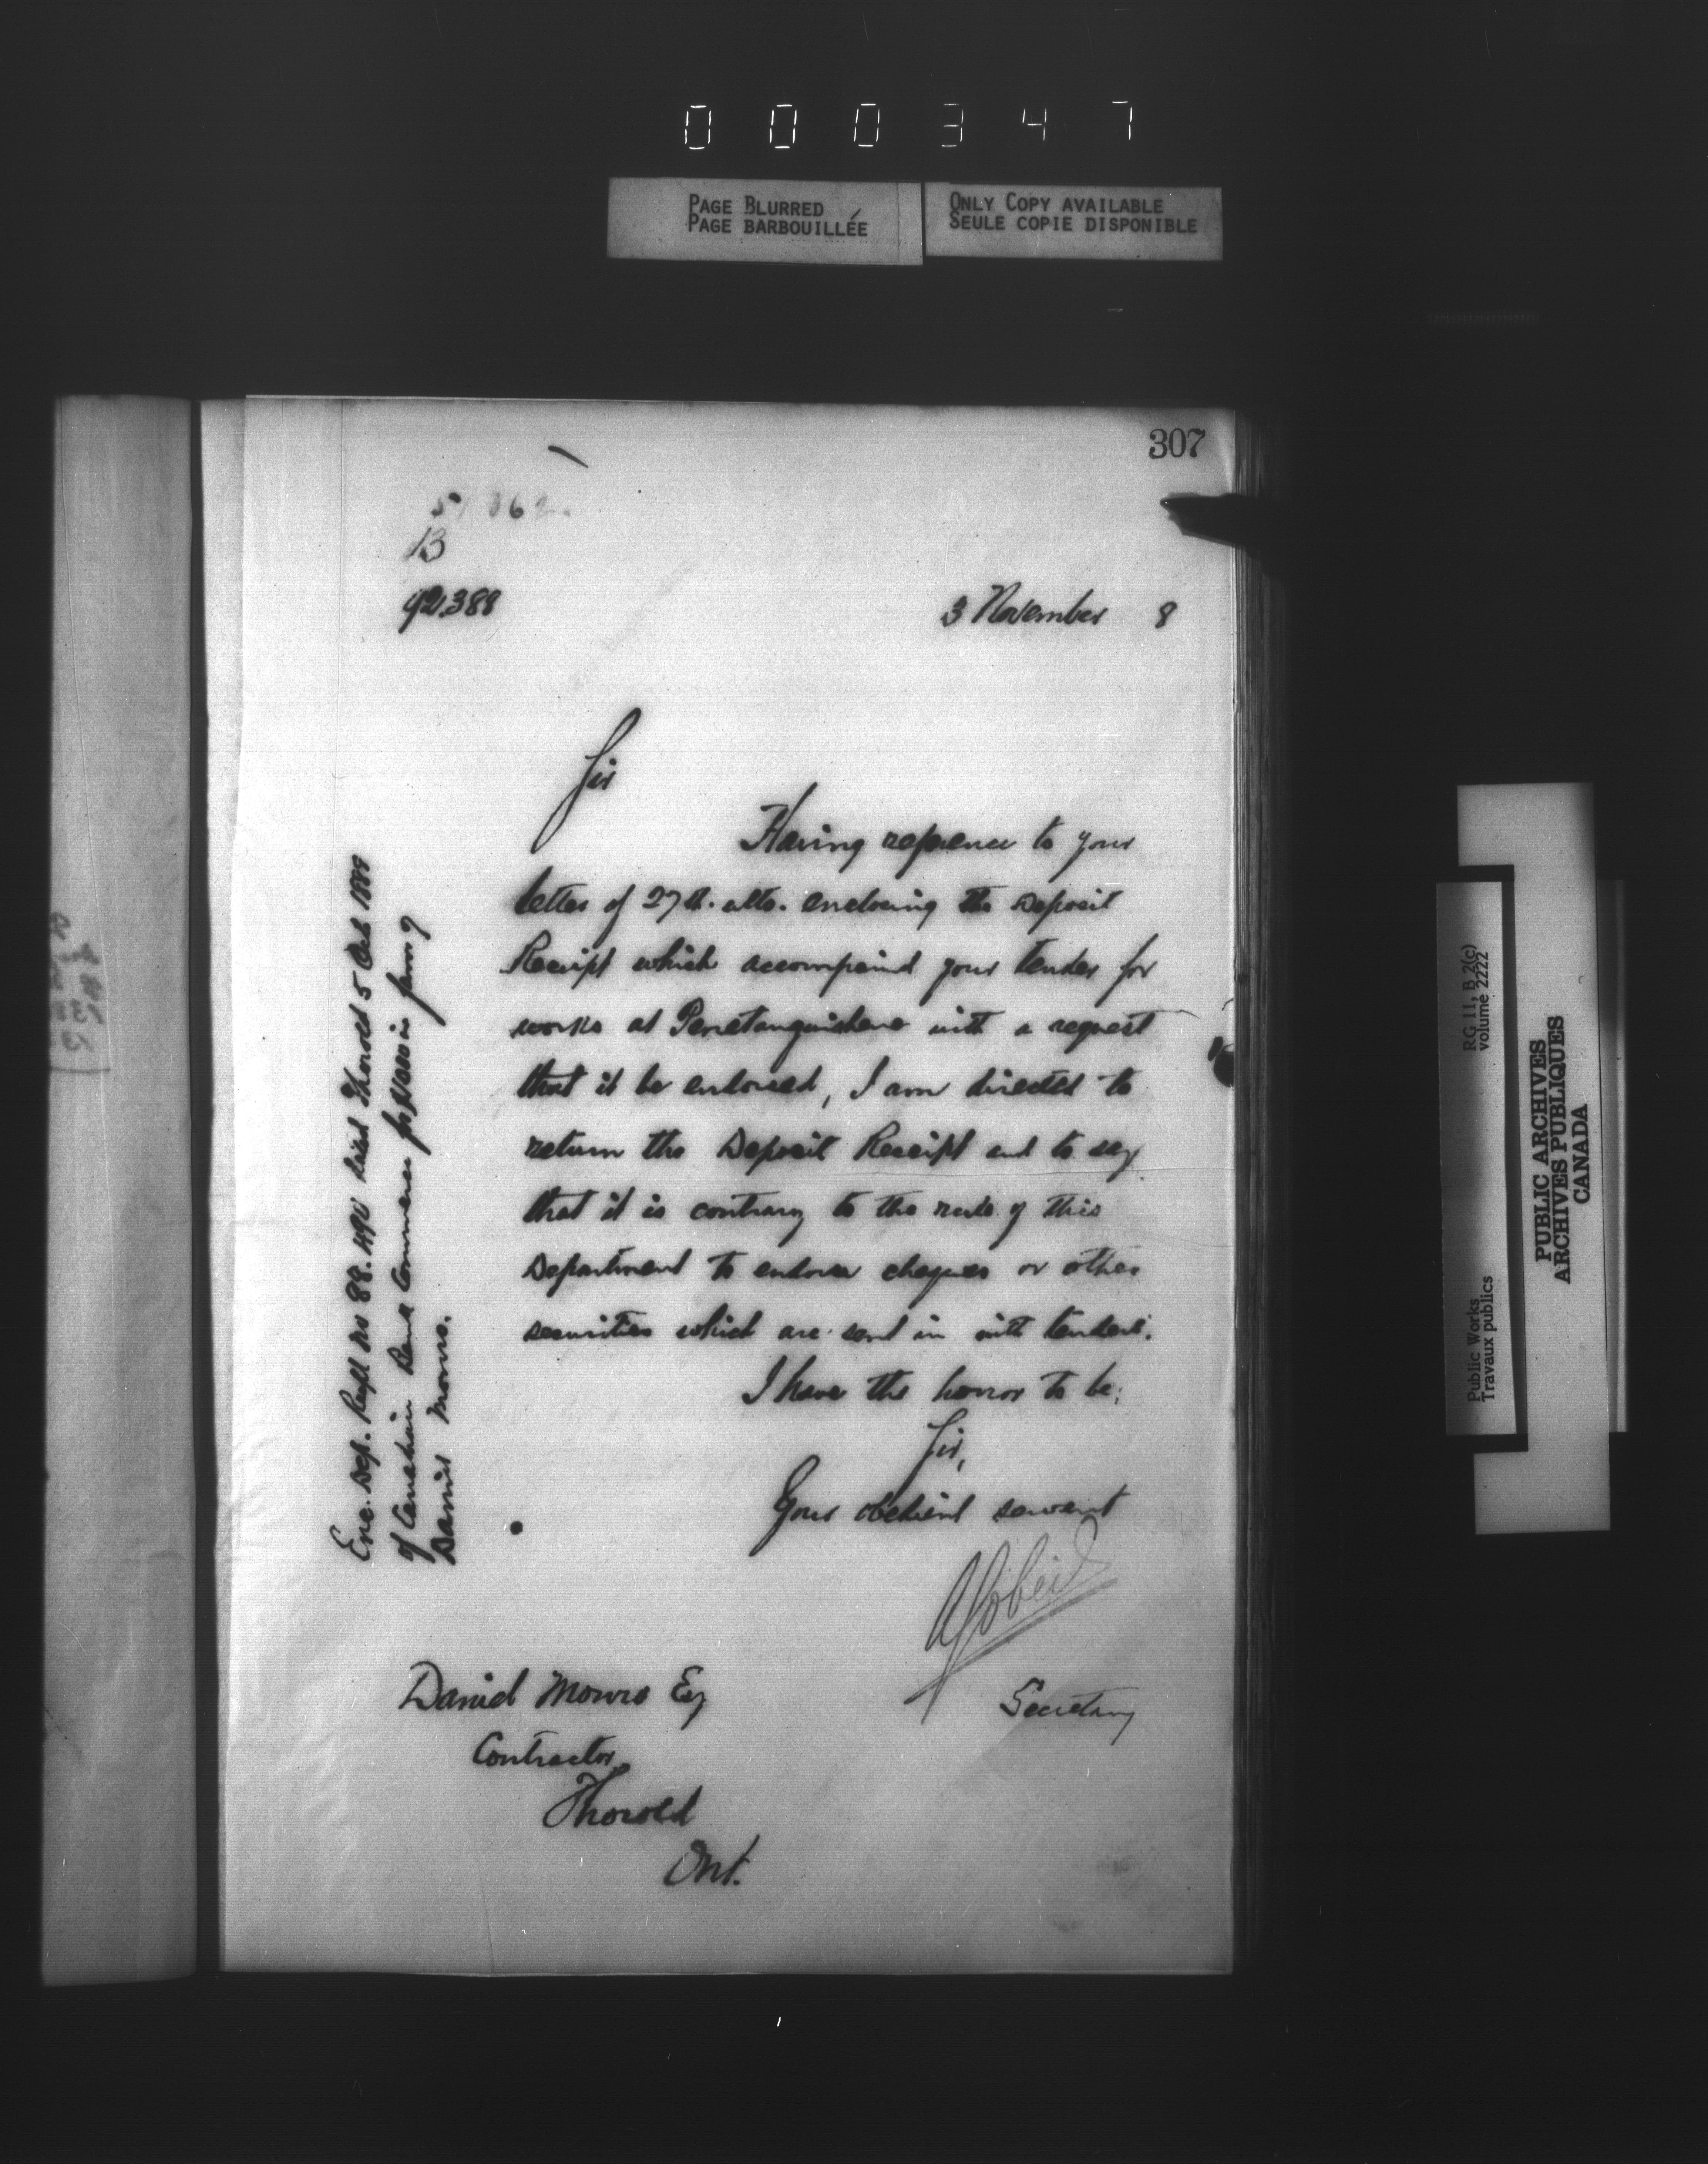 000347
PAGE BLURRED
PAGE BARBOUILLÉE
ONLY COPY AVAILABLE
SEULE COPIE DISPONIBLE
307
13
92388
3 November 8
Sir
Having reference to your
letter of 27th. ulto. enclosing the Deposit
Receipt which accompanied your tender for
works at Penetanguishene with a request
that it be endorsed, I am directed to
return the Deposit Receipt and to say
that it is contrary to the rule of this
Department to endorse cheques or other
securities which are sent in with tenders.
I have the honor to be;
Sir,
Your obedient servant
Secretary
Daniel Monro Esq
Contractor
Thorold
Ont.
Enc. Dep. Rect No 88. dated Thorold 5 Oct 1888
of Canadian Bank Commerce for in favor of
Daniel Monro.
RG 11, B 2(c)
volume 2222
Public Works
Travaux publics
PUBLIC ARCHIVES
ARCHIVES PUBLIQUES
CANADA